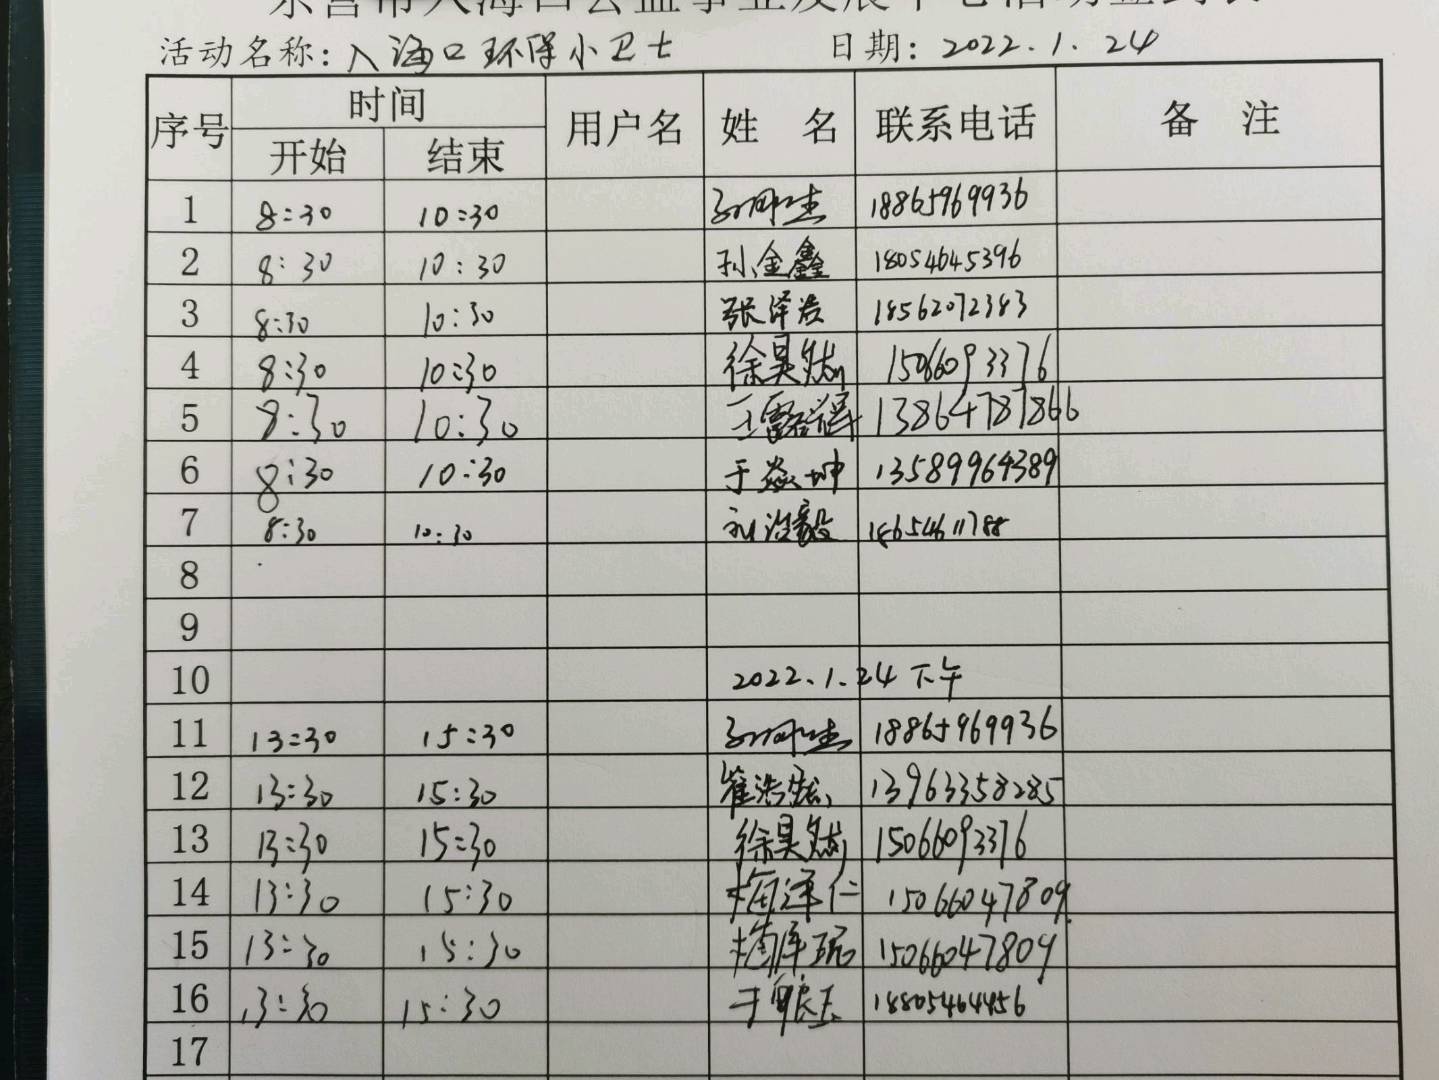 活动名称: 入海口环保小卫士 日期: 2022.1.24
序号 时间 用户名 姓 名 联系电话 备 注
开始 结束
1 8:30 10:30 18865969936
2 8:30 10:30 孙金鑫 18054645396
3 8:30 10:30 张泽浩 18562072383
4 8:30 10:30 徐昊然 15066093376
5 8:30 10:30 13864787866
6 8:30 10:30 于焱坤 13589964389
7 8:30 10:30 刘浩毅 18654611788
8
9
10 2022.1.24 下午
11 13:30 15:30 18865969936
12 13:30 15:30 13963358285
13 13:30 15:30 徐昊然 15066093376
14 13:30 15:30 梅泽仁 15066047809
15 13:30 15:30 15066047809
16 13:30 15:30 18805464456
17